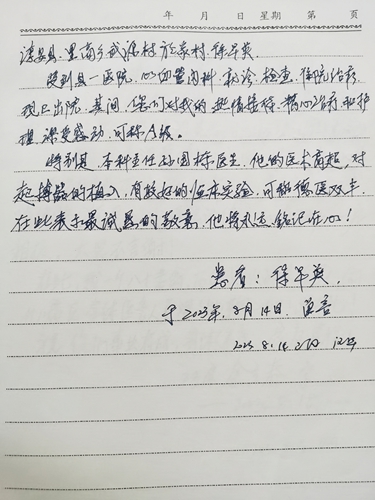 年 月 日 星期 第 页
县 里南乡 村 村 徐早英
到县一医院 心血管内科 初诊 检查 住院治疗
现已出院 其间 您们对我的热情接待 精心治疗和护
理 深受感动 可称A级。
特别是 本科主任孙国栋医生 他的医术高超 对
起搏器的植入 有较好的临床实验 可称德医双丰
在此表示最诚恳的敬意 他将永远铭记在心!
患者:徐早英
于2023年 8月14日
2023.8.14